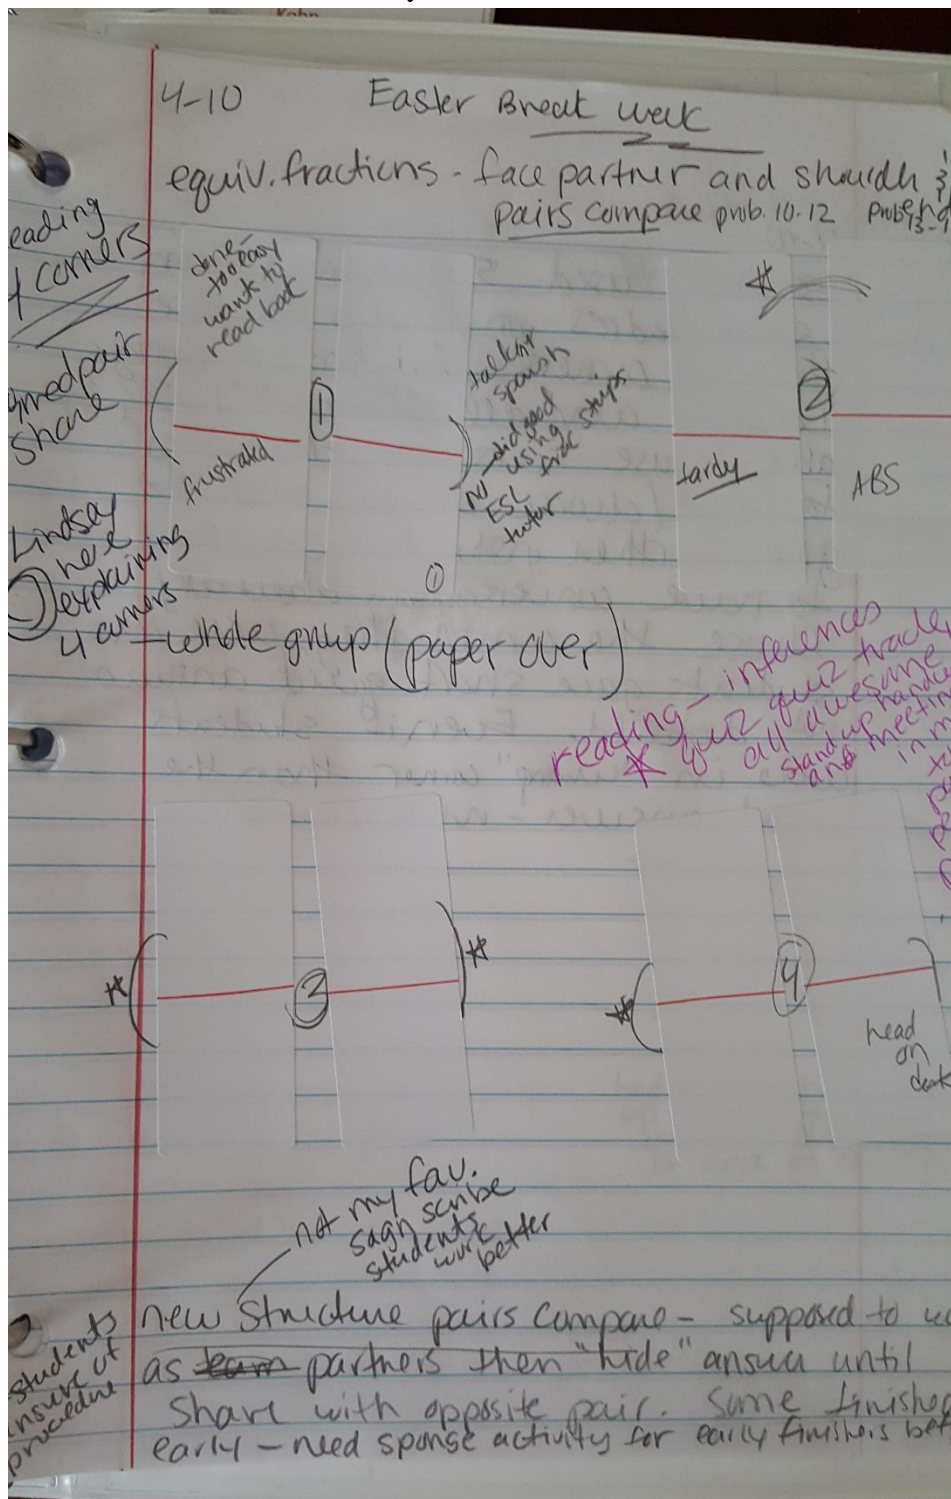 4-10 Easter Break week
equiv. fractions - face partner and
pairs compare prob. 10-12
4 corners
pair
share
done-
too easy
wants to
read book
1
frustrated
talking
spanish
did good
using
frac strips
no
ESL
tutor
2
tardy
ABS
Lindsay
here
explaining
4 corners
- whole group (paper over)
reading - inferences
* quiz quiz trade
all awesome
stand up
and
3
4
head
on
not my fav.
sagn scribe
students
work
better
new structure pairs compare - supposed to
as team partners then "hide" answer until
share with opposite pair. Some
early - need sponse activity for early finishers
students
procedure